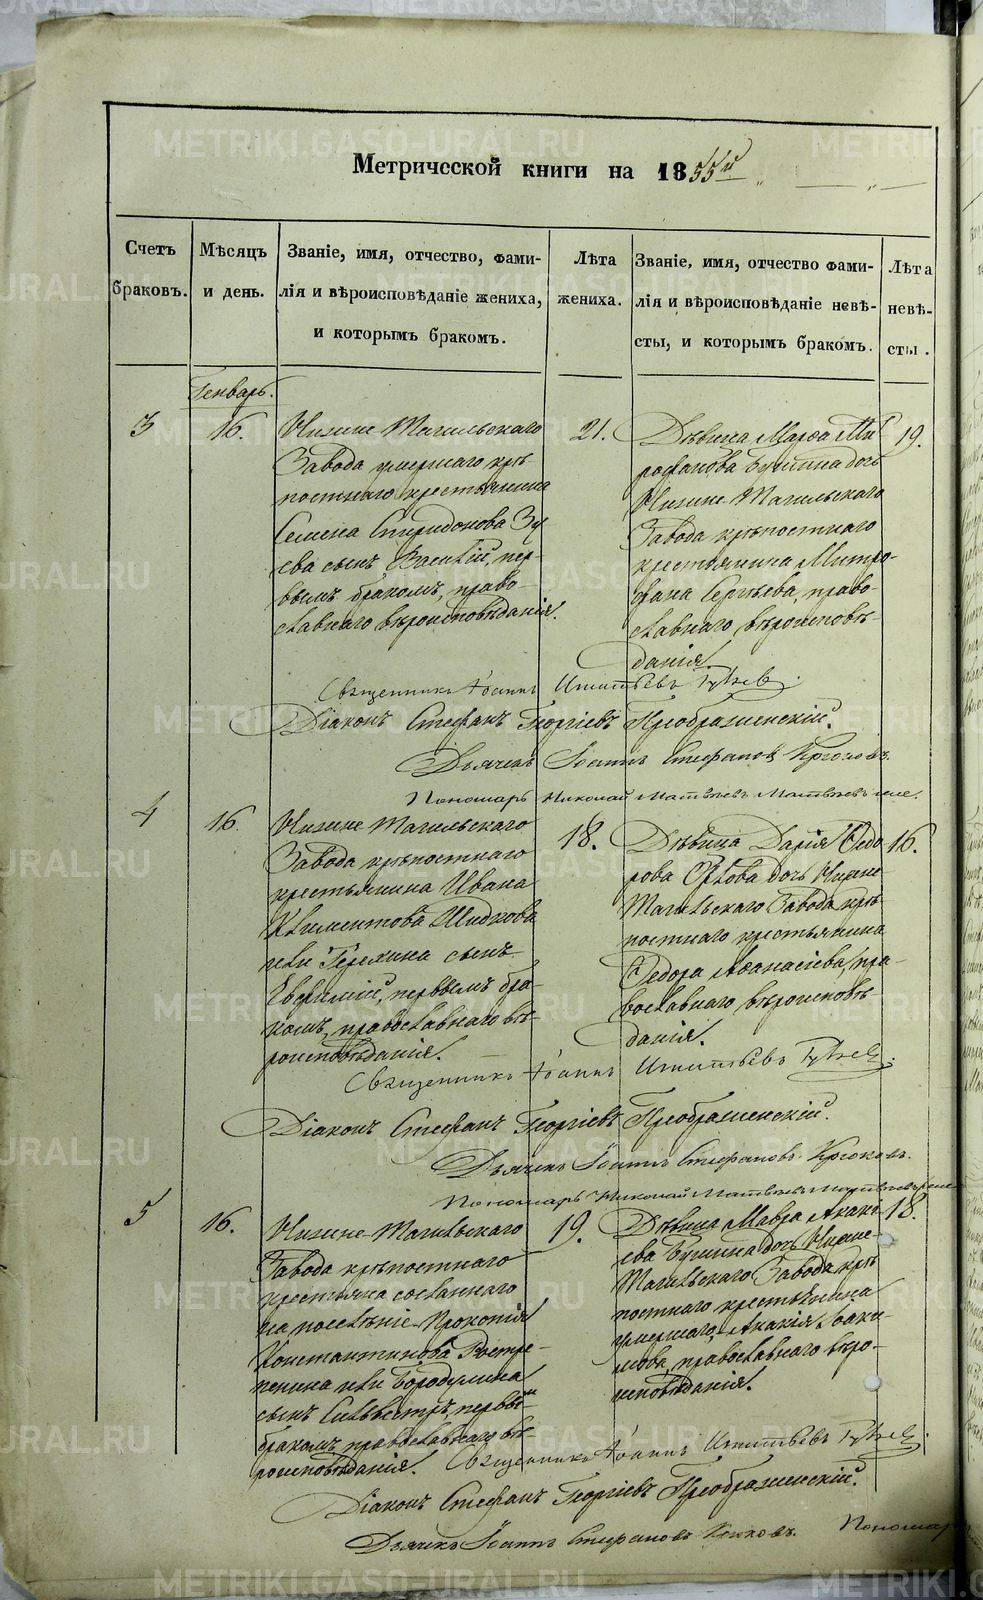 Метрической книги на 1855й
Счетъ браковъ.
Мѣсяцъ и день.
Званіе, имя, отчество, фами-
лія и вѣроисповѣданіе жениха,
и которымъ бракомъ.
Лѣта жениха.
Званіе, имя, отчество фами-
лія и вѣроисповѣданіе невѣ-
сты, и которымъ бракомъ.
Лѣта невѣ-
сты.
Генварь.
3
16.
Нижне-Тагильскаго
Завода умершаго крѣ-
постнаго крестьянина
Семена Спиридонова Зу-
ева сынъ Василій, пер-
вымъ бракомъ, право-
славнаго вѣроисповѣданія.
21.
Дѣвица Марѳа Ми-
рофанова Бушина дочь
Нижне-Тагильскаго
Завода крѣпостнаго
крестьянина Митро-
фана Сергѣева, право-
славнаго вѣроисповѣ-
данія.
19.
Священникъ Іоаннъ Игнатьевъ
Діаконъ Стефанъ Георгіевъ Преображенскій.
Дьячекъ Іоаннъ Стефановъ Крюковъ.
Пономарь Николай Матвѣевъ
4
16.
Нижне-Тагильскаго
Завода крѣпостнаго
крестьянина Ивана
Климентова
или сынъ
Евфимій, первымъ бра-
комъ, православнаго вѣ-
роисповѣданія.
18.
Дѣвица Дарія Ѳедо-
рова Орлова дочь Нижне
Тагильскаго Завода крѣ-
постнаго крестьянина
Ѳедора Аѳанасіева, пра-
вославнаго вѣроисповѣ-
данія.
16.
Священникъ Іоаннъ Игнатьевъ
Діаконъ Стефанъ Георгіевъ Преображенскій.
Дьячекъ Іоаннъ Стефановъ Крюковъ.
Пономарь Николай Матвѣевъ
5
16.
Нижне-Тагильскаго
Завода крѣпостнаго
крестьянина сосланнаго
на поселѣніе Прокопія
Константинова Растре-
пенина или Бородулина
сынъ Сильвестръ, первымъ
бракомъ, православнаго вѣ-
роисповѣданія.
19.
Дѣвица Мавра Акакі-
ева Бушина дочь Нижне-
Тагильскаго Завода крѣ-
постнаго крестьянина
умершаго, Акакія Іоаки-
мова, православнаго вѣро-
исповѣданія.
18.
Священникъ Іоаннъ Игнатьевъ
Діаконъ Стефанъ Георгіевъ Преображенскій.
Дьячекъ Іоаннъ Стефановъ Крюковъ. Пономарь
METRIKI.GASO-URAL.RU